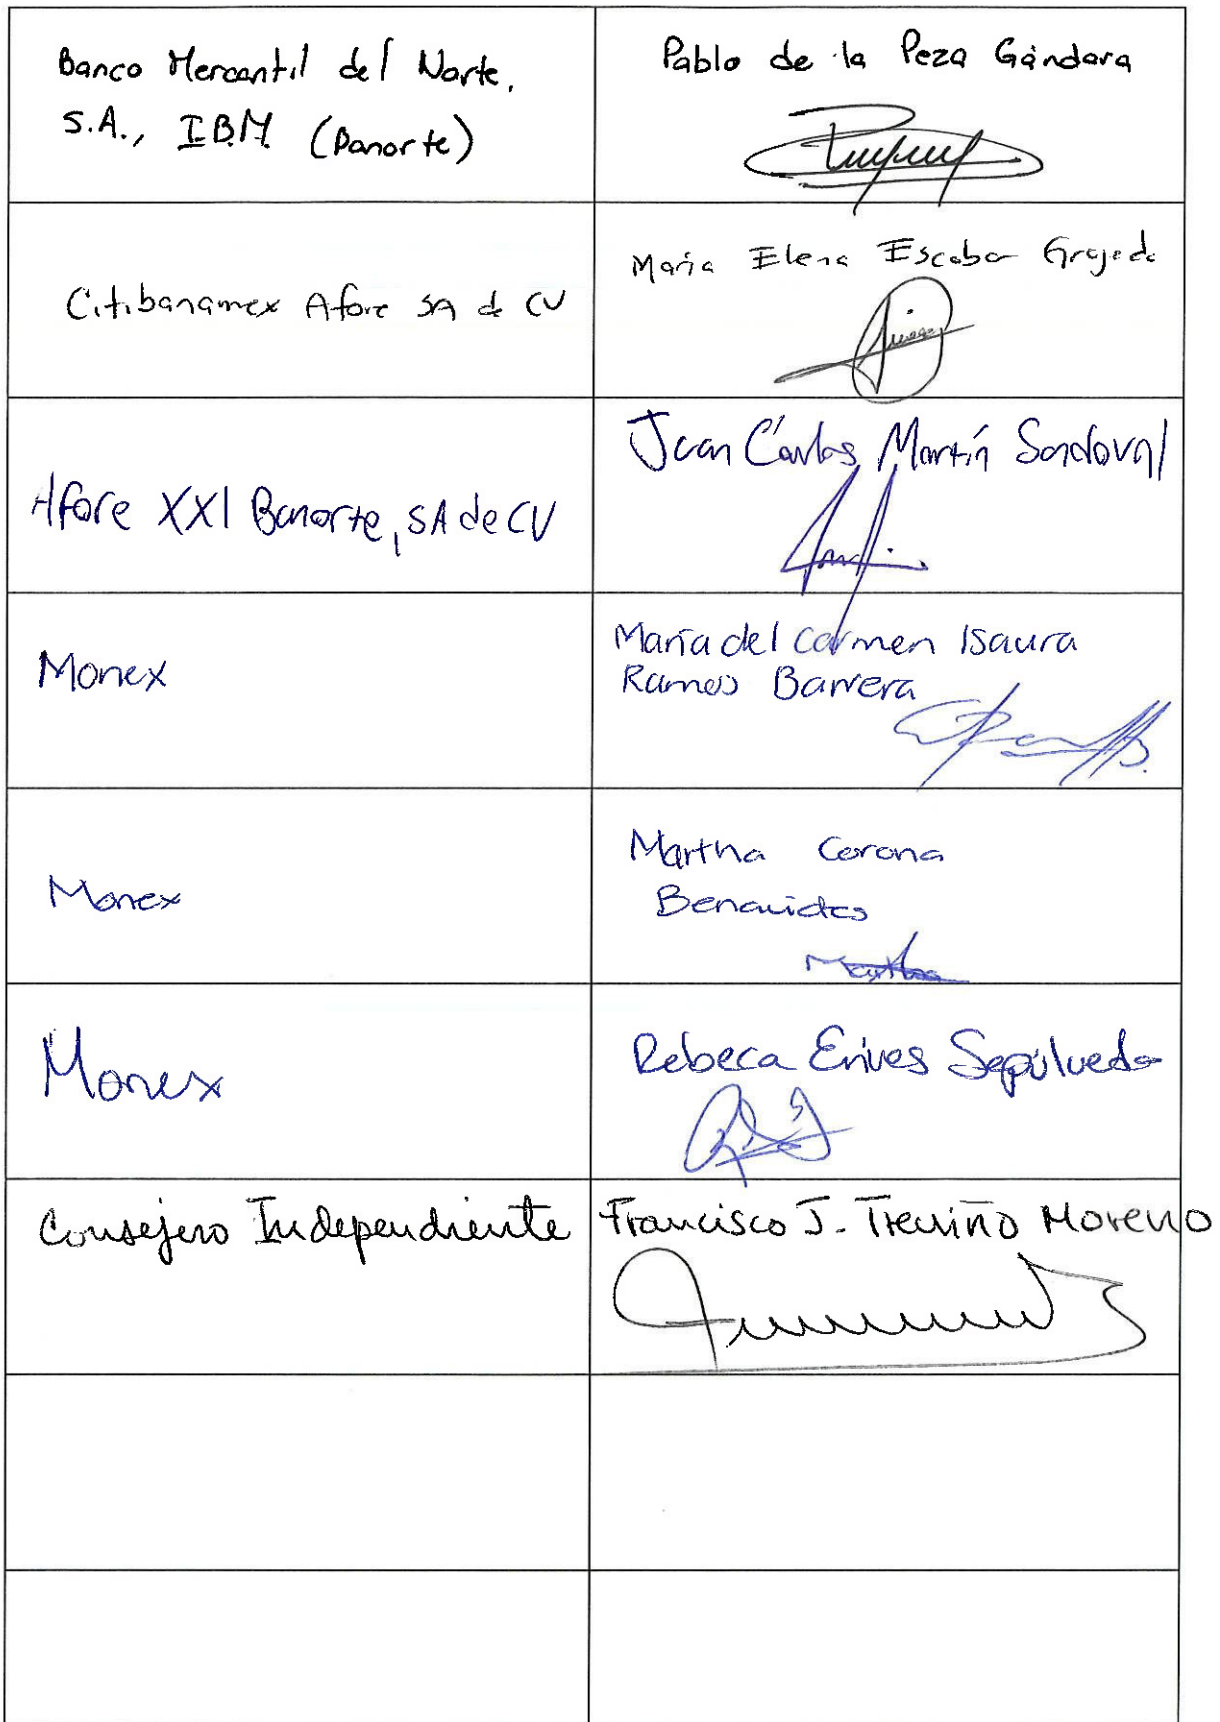 Banco Mercantil del Norte,
S.A., I.B.M. (Banorte)
Pablo de la Peza Gándara
Citibanamex Afore SA de CV
María Elena Escobar Grajeda
Afore XXI Banorte, SA de CV
Juan Carlos Martín Sandoval
Monex
María del Carmen Isaura
Ramos Barrera
Monex
Martha Corona
Benavides
Martha
Monex
Rebeca Erives Sepúlveda
Consejero Independiente
Francisco J. Treviño Moreno